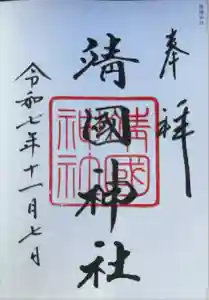 奉拝
靖國神社
靖國神社
令和七年十一月七日